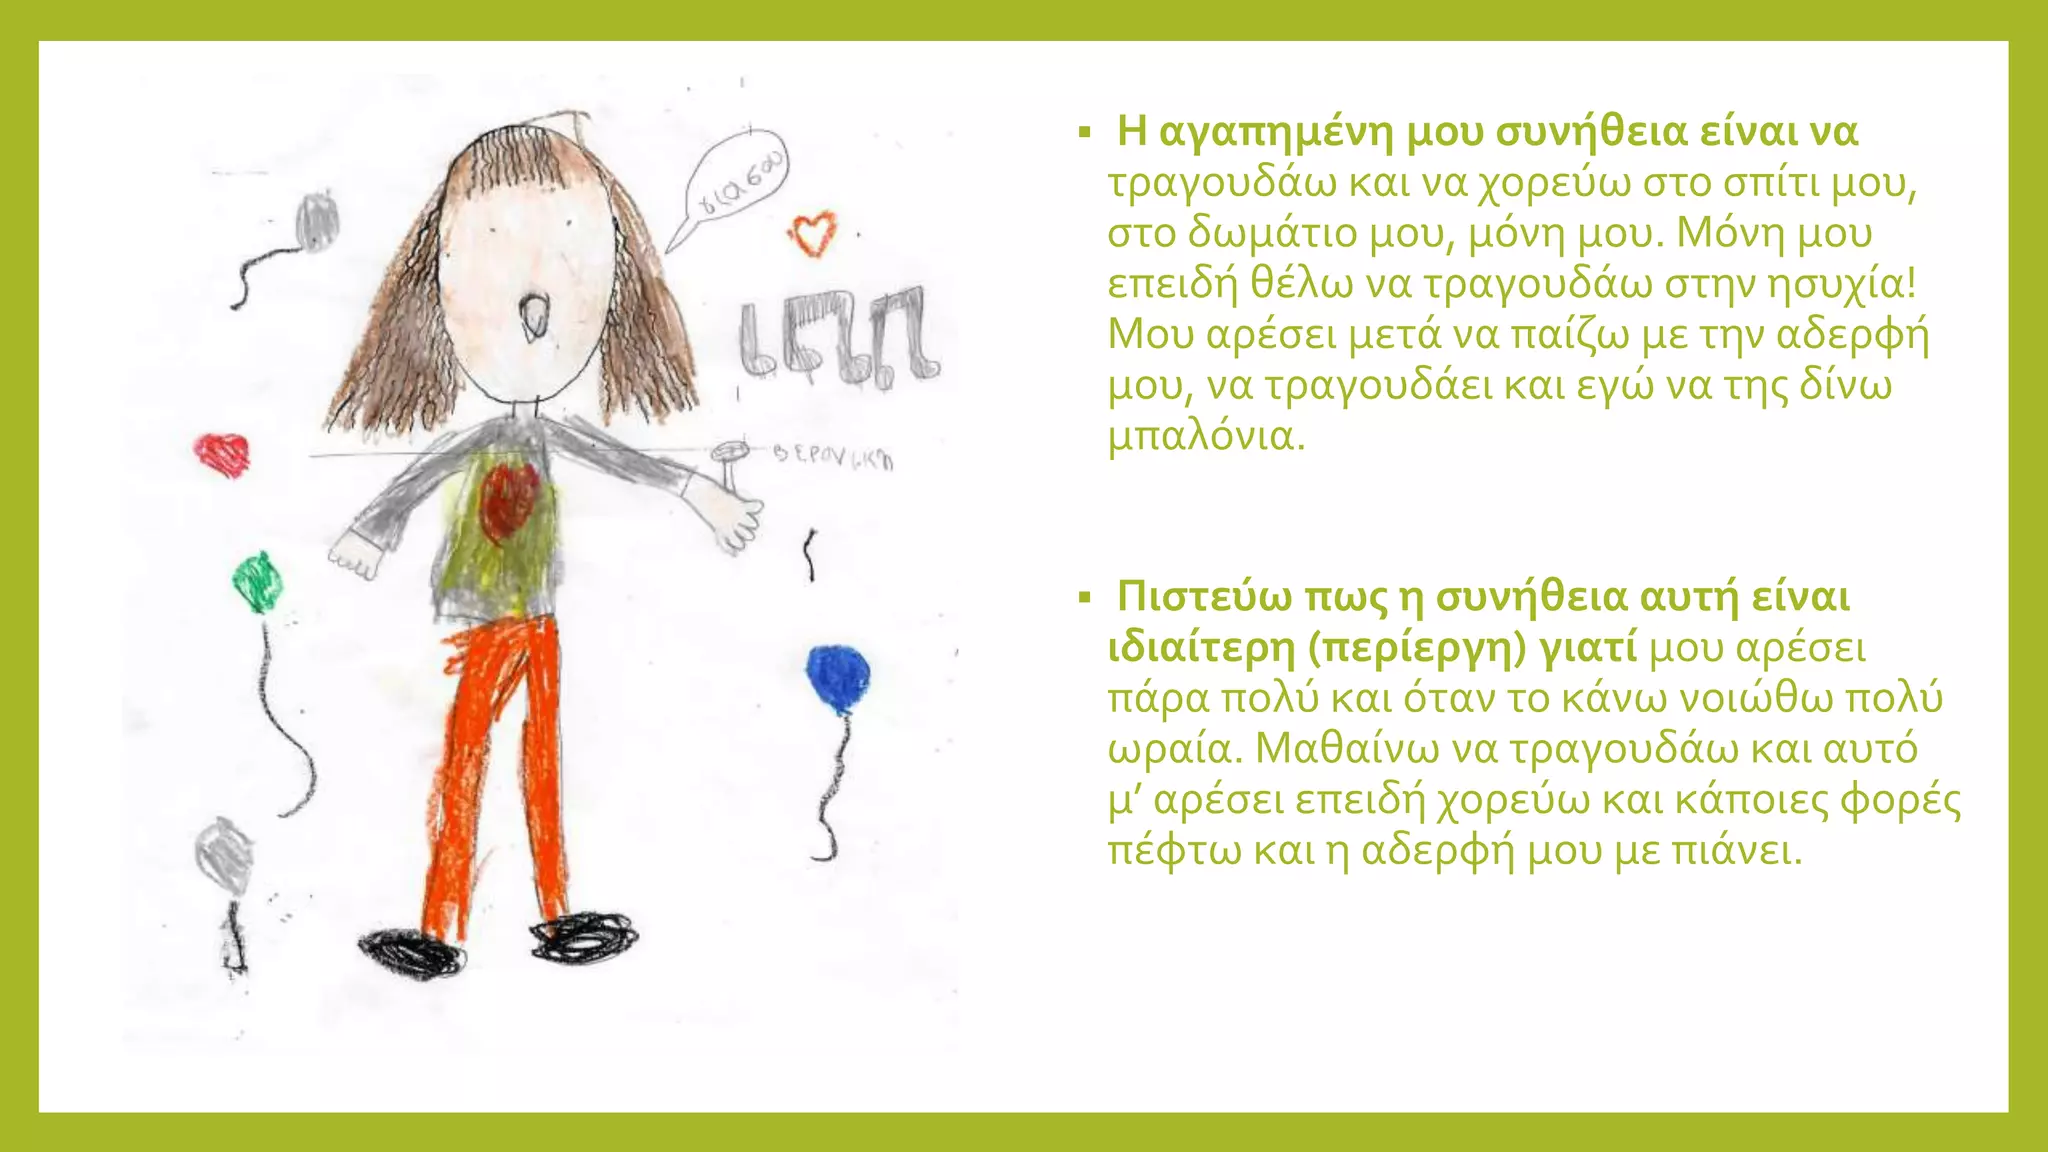 γιασου
ΒΕΡΟΝΙΚΗ
▪ Η αγαπημένη μου συνήθεια είναι να
τραγουδάω και να χορεύω στο σπίτι μου,
στο δωμάτιο μου, μόνη μου. Μόνη μου
επειδή θέλω να τραγουδάω στην ησυχία!
Μου αρέσει μετά να παίζω με την αδερφή
μου, να τραγουδάει και εγώ να της δίνω
μπαλόνια.
▪ Πιστεύω πως η συνήθεια αυτή είναι
ιδιαίτερη (περίεργη) γιατί μου αρέσει
πάρα πολύ και όταν το κάνω νοιώθω πολύ
ωραία. Μαθαίνω να τραγουδάω και αυτό
μ’ αρέσει επειδή χορεύω και κάποιες φορές
πέφτω και η αδερφή μου με πιάνει.